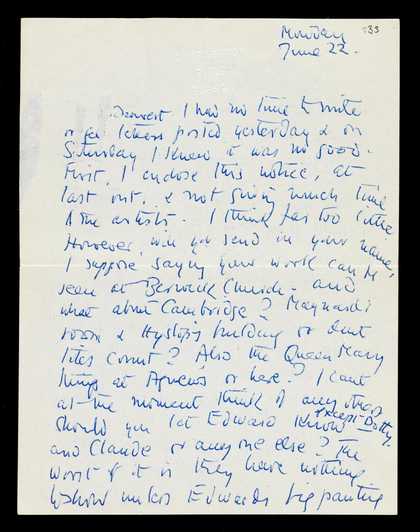 Monday 33
June 22.
Dearest I had no time to write
or get letters posted yesterday & on
Saturday I knew it was no good.
First, I enclose this notice, at
last out, & not giving much time
to the artists. I think far too little
However, will you send in your name,
I suppose saying your work can be
seen at Berwick Church - and
what about Cambridge? Maynard's
room & Hyslop's building or dont
they count? Also the Queen Mary
things at Agnew's or here? I cant
at the moment think of any others
should you let Edward know except Dotty?
and Claude or anyone else? The
worst of it is they have nothing
to show unless Edwards big painting